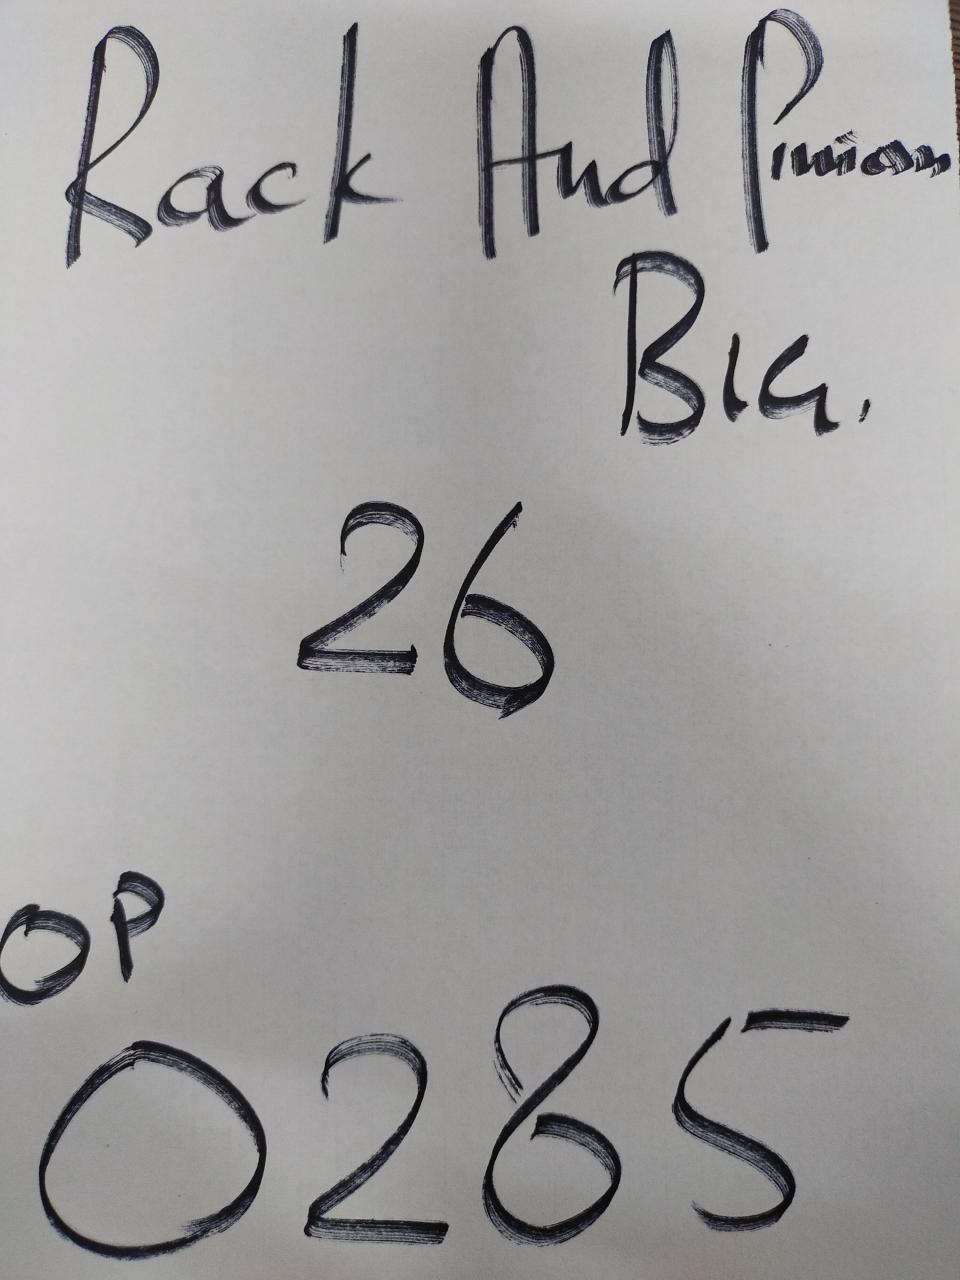 Rack And Pinion
BIG.
26
OP
0285